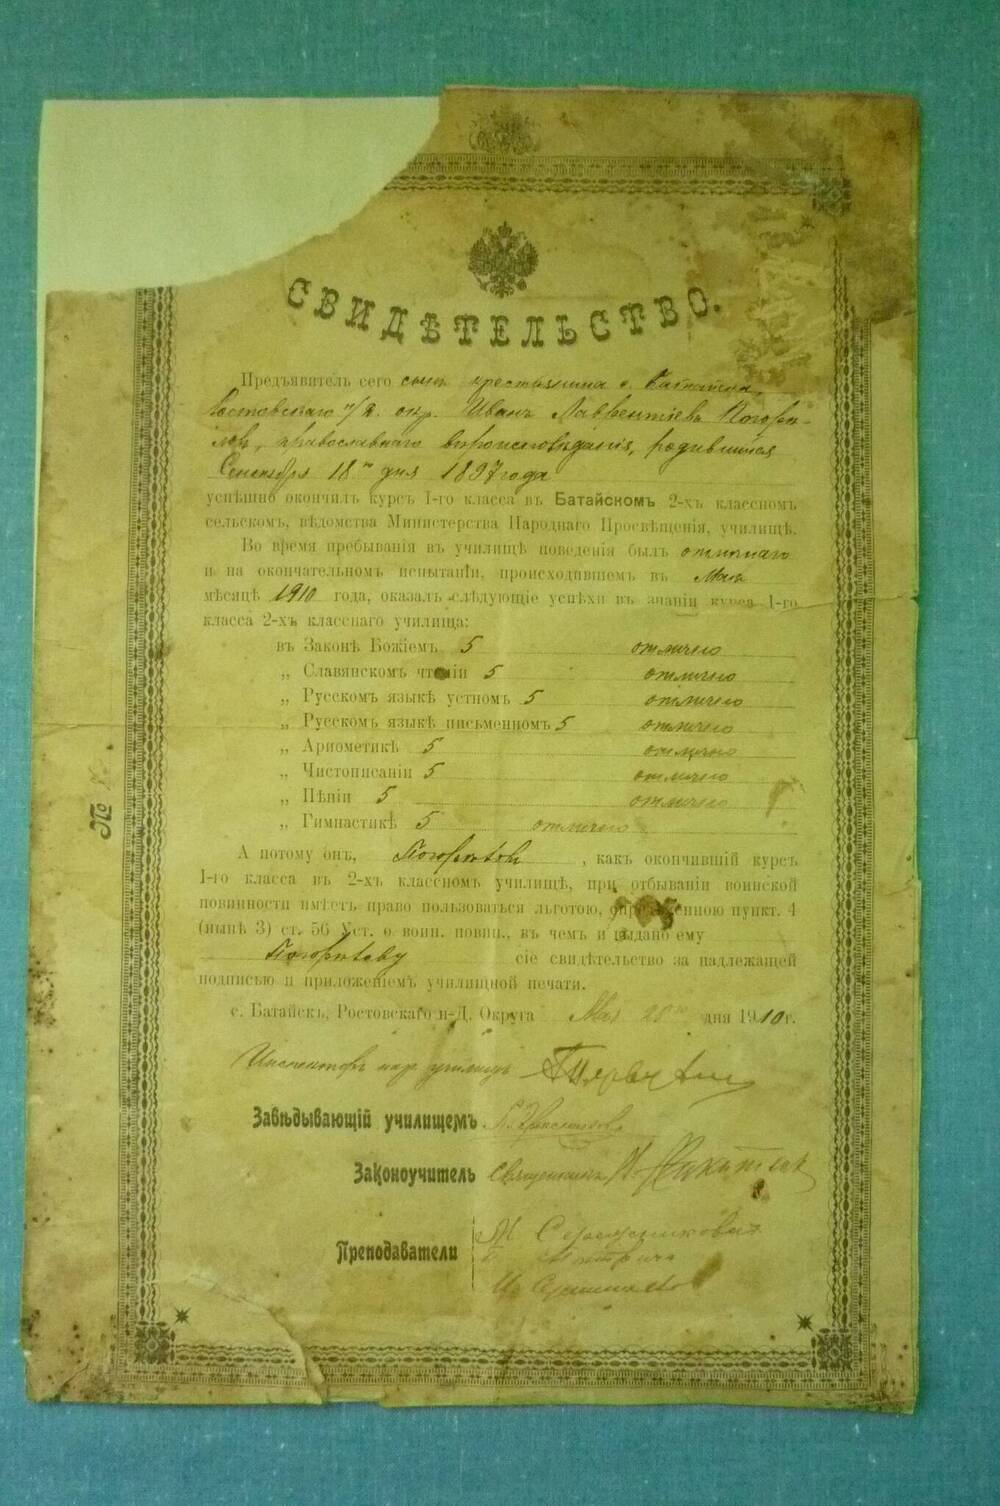 СВИДѢТЕЛЬСТВО.
Предъявитель сего сынъ крестьянина с. Батайска,
Ростовскаго н/Д. окр. Иванъ Лаврентіевъ Погорѣ-
ловъ, православнаго вѣроисповѣданія, родившійся
Сентября 18го дня 1897 года
успѣшно окончилъ курсъ 1-го класса въ Батайскомъ 2-хъ классномъ
сельскомъ, вѣдомства Министерства Народнаго Просвѣщенія, училищѣ.
Во время пребыванія въ училищѣ поведенія былъ отличнаго
и на окончательномъ испытаніи, происходившемъ въ Маѣ
мѣсяцѣ 1910 года, оказалъ слѣдующіе успѣхи въ знаніи курса 1-го
класса 2-хъ класснаго училища:
въ Законѣ Божіемъ 5 отлично
„ Славянскомъ чтеніи 5 отлично
„ Русскомъ языкѣ устномъ 5 отлично
„ Русскомъ языкѣ письменномъ 5 отлично
„ Ариѳметикѣ 5 отлично
„ Чистописаніи 5 отлично
„ Пѣніи 5 отлично
„ Гимнастикѣ 5 отлично
А потому онъ, Погорѣловъ, какъ окончившій курсъ
1-го класса въ 2-хъ классномъ училищѣ, при отбываніи воинской
повинности имѣетъ право пользоваться льготою, опредѣленною пункт. 4
(нынѣ 3) ст. 56 Уст. о воин. повин., въ чемъ и выдано ему
Погорѣлову сіе свидѣтельство за надлежащей
подписью и приложеніемъ училищной печати.
с. Батайскъ, Ростовскаго н-Д. Округа Мая 28го дня 1910 г.
Инспекторъ нар. училищъ
Завѣдывающій училищемъ
Законоучитель Священникъ
Преподаватели
№